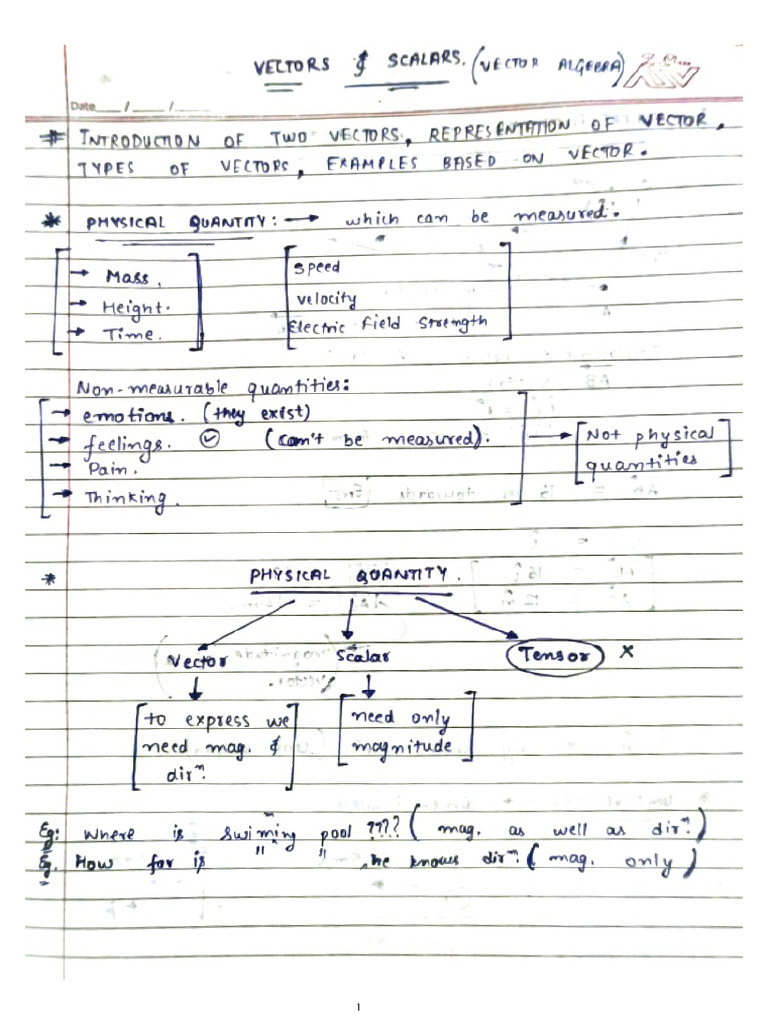 VECTORS & SCALARS. (VECTOR ALGEBRA)
Date ___ / ___ / ___
# INTRODUCTION OF TWO VECTORS, REPRESENTATION OF VECTOR,
TYPES OF VECTORS, EXAMPLES BASED ON VECTOR.
* PHYSICAL QUANTITY: → which can be measured.
→ Mass,
→ Height.
→ Time.
speed
velocity
Electric field strength
Non-measurable quantities:
→ emotions. (they exist)
→ feelings. (can't be measured).
→ Pain.
→ Thinking.
→ Not physical
quantities
* PHYSICAL QUANTITY.
Vector Scalar Tensor X
to express we
need mag. &
dirⁿ.
need only
magnitude
Eg: Where is swiming pool ???? (mag. as well as dirⁿ.)
Eg. How far is " " , he knows dirⁿ. (mag. only)
1